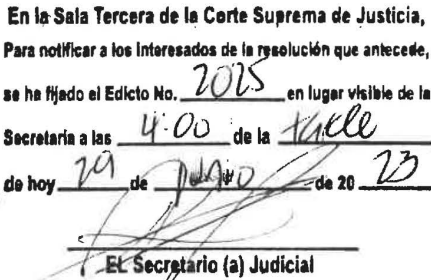 En la Sala Tercera de la Corte Suprema de Justicia,
Para notificar a los interesados de la resolución que antecede,
se ha fijado el Edicto No. 2025 en lugar visible de la
Secretaría a las 4:00 de la tarde
de hoy 29 de de 20 23
EL Secretario (a) Judicial